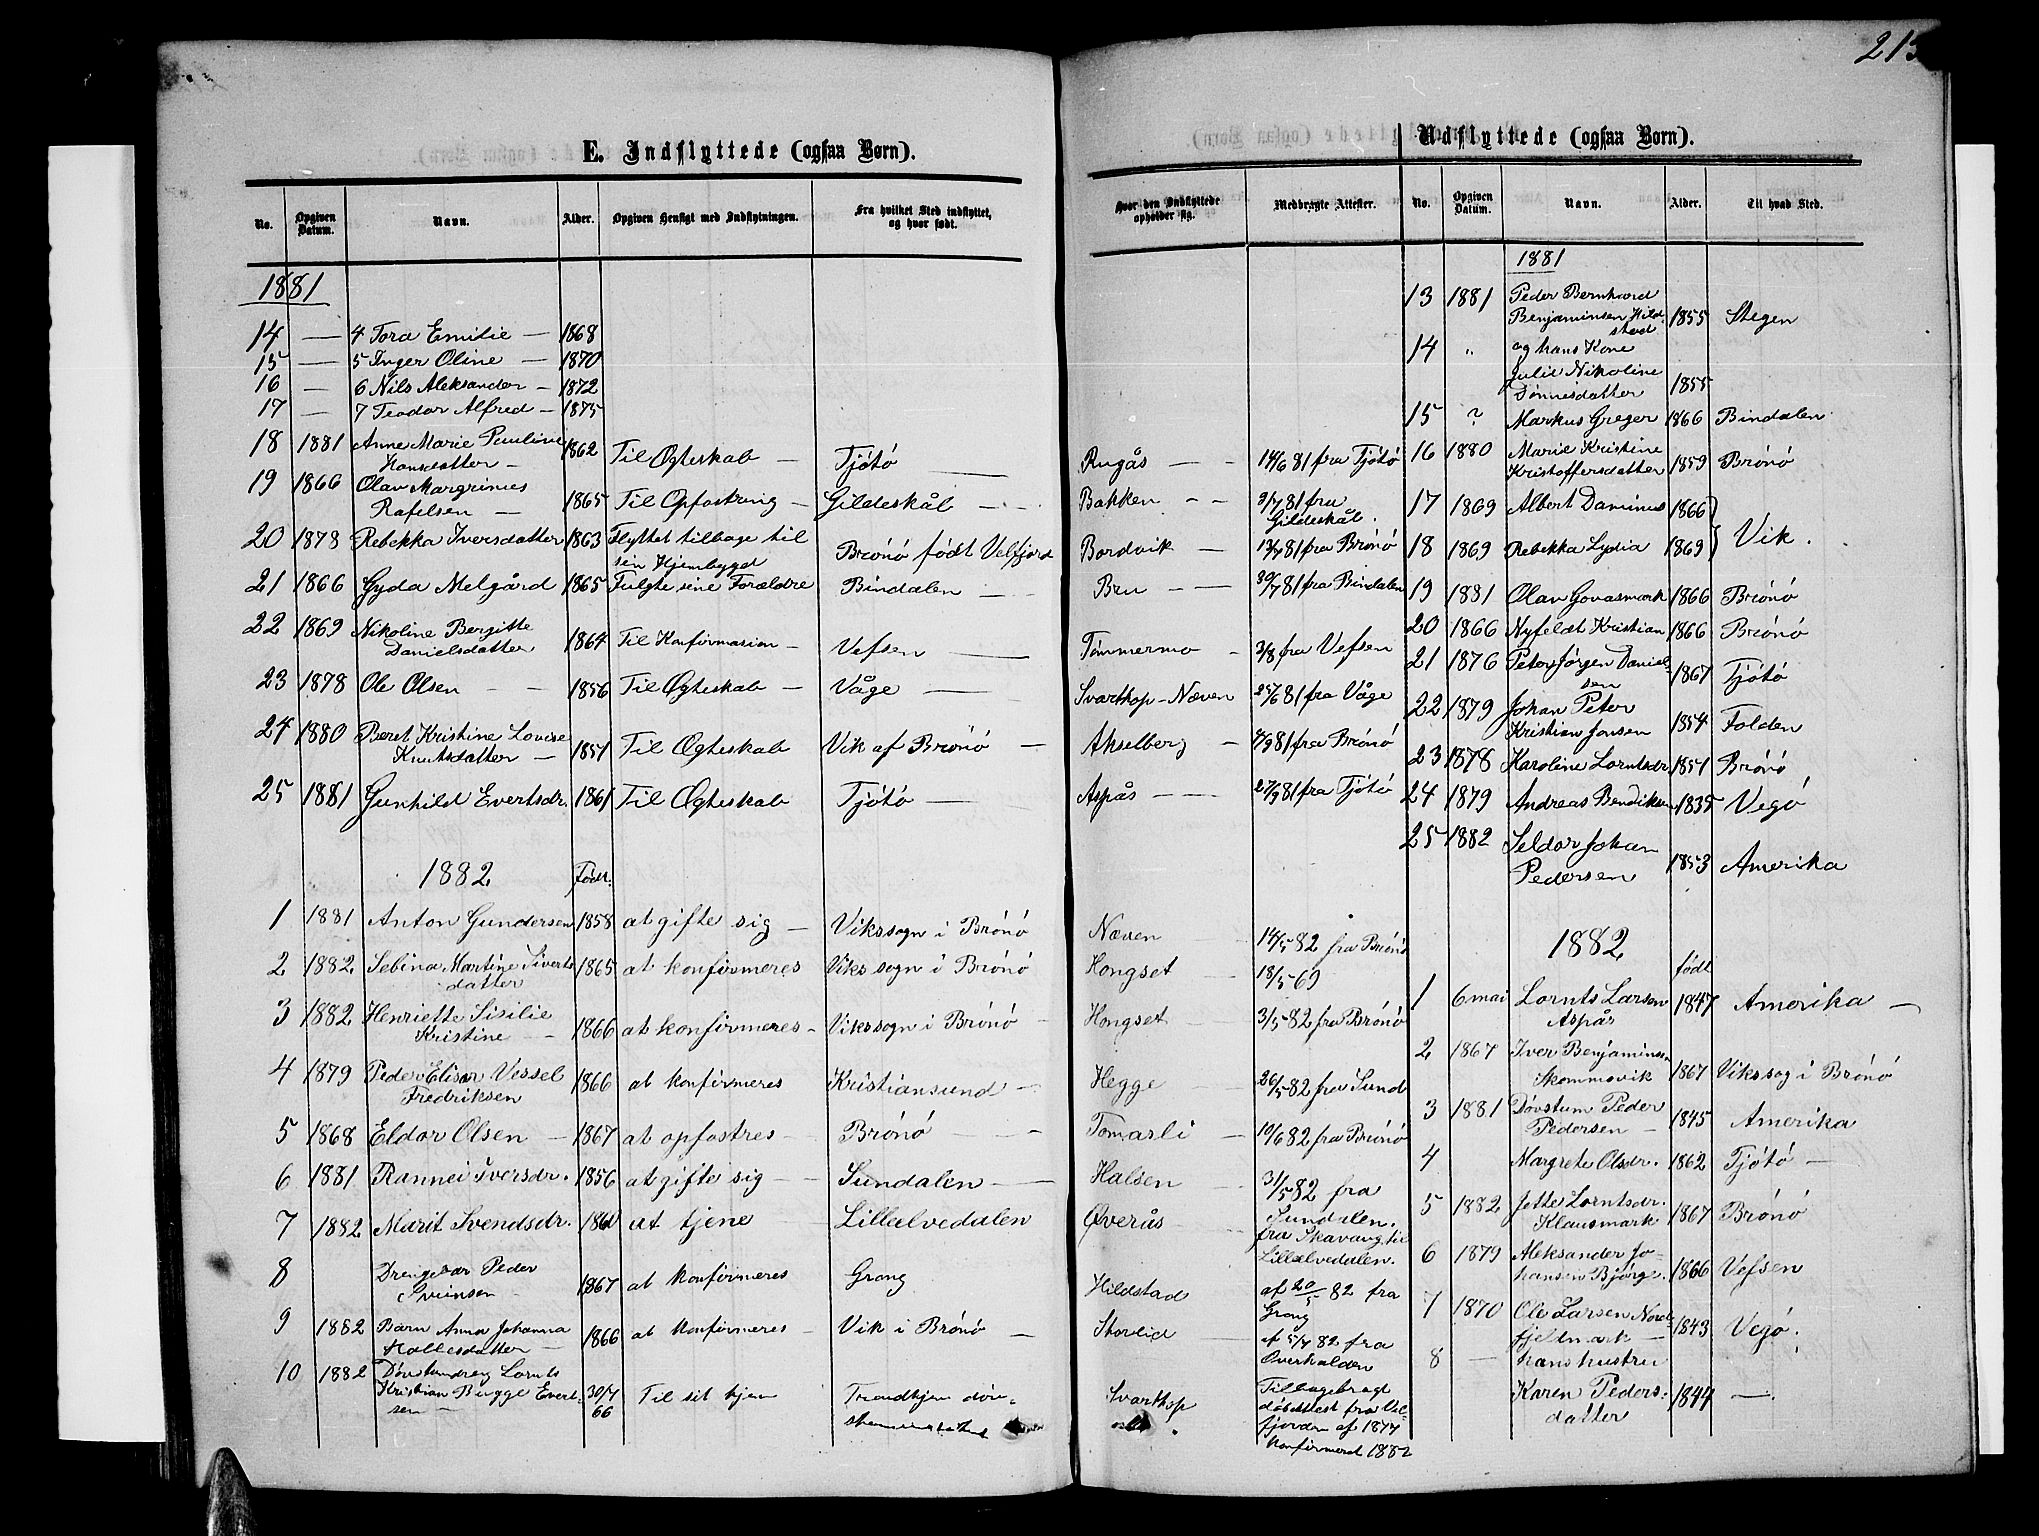 213
E. Indflyttede (ogsaa Børn).
No. Opgiven Datum. Navn. Alder. Opgiven Hensigt med Indflytningen. Fra hvilket Sted indflyttet, og hvor født.
1881
14 — 4 Tora Emilie — 1868
15 — 5 Inger Oline — 1870
16 — 6 Nils Aleksander — 1872
17 — 7 Teodor Alfred — 1875
18 1881 Anne Marie Pauline
Hansdatter — 1862 Til Ægteskab — Tjötö —
19 1866 Olav Margrinus
Rafelsen — 1865 Til Opfostring — Gildeskål —
20 1878 Rebekka Iversdatter 1863 Flyttet tilbage til
sin Hjembygd Brönö född Velfjord
21 1866 Gyda Melgård 1865 Fulgte sine Forældre Bindalen —
22 1869 Nikoline Bergitte
Danielsdatter 1864 Til Konfirmasion — Vefsen —
23 1878 Ole Olsen — 1856 Til Ægteskab — Våge —
24 1880 Beret Kristine Lovise
Knutsdatter — 1857 Til Ægteskab Vik af Brönö —
25 1881 Gunhild Evertsdr. 1861 Til Ægteskab Tjötö —
1882 Födt.
1 1881 Anton Gundersen 1858 at gifte sig — Vikssogn i Brönö
2 1882 Sebina Martine Siverts
datter 1865 at konfirmeres Viks sogn i Brönö
3 1882 Henriette Sisilie
Kristine — 1866 at konfirmeres — Vikssogn i Brönö —
4 1879 Peder Elisar Vessel
Fredriksen 1866 at konfirmeres Kristiansund —
5 1868 Eldor Olsen — 1867 at opfostres — Brönö —
6 1881 Rannei Iversdr. 1856 at gifte sig — Sundalen —
7 1882 Marit Svendsdr. at tjene — Lillelvedalen
8 Peder
1867 at konfirmeres Grong
9 1882 Barn Anna Johanna
1866 at konfirmeres — Vik i Brönö —
10 1882 Lornts
Kristian Bugge Evert-
sen — 30/7 66 Til sit hjem Trondhjem döv-
Hvor den Indflyttede opholder sig. Medbragte Attester.
Rugås — — 14/6 81 fra Tjötö
Bakken — — 81 fra
Gildeskål.
Bordvik — 81 fra Brönö
Bru — — 81 fra Bindalen
Tömmermo — 3/8 fra Vefsen
Svarthop-Næven 81 fra Våge
Akselberg — 81 fra Brönö
Aspås — — 27/9 81 fra Tjötö
Næven 14/5 82 fra Brönö
Hongset — 18/5 69
Hongset — 3/5 82 fra Brönö
Hegge — 26/5 82 fra Sund
Tomasli — 10/6 82 fra Brönö
Halsen — 31/5 82 fra
Sundalen.
Øverås — fra Skavang til
Lillelvedalen.
Hildstad af 20/5 82 fra
Grong
Storlid — af 5/4 82 fra
Overhalden
Svarthop Tilbagebragt
döbattest fra Vel-
fjorden af 1877
Konfirmeret 1882
Udflyttede (ogsaa Børn).
No. Opgiven Datum. Navn. Alder. Til hvad Sted.
1881
13 1881 Peder Bernhard
Benjaminsen Hild-
stad 1855 Stegen
14 " og hans Kone
Julie Nikoline
Dönnesdatter 1855
15 ? Markus Greger 1866 Bindalen
16 1880 Marie Kristine
Kristoffersdatter 1859 Brönö
17 1869 Albert Daminus 1866
18 1869 Rebekka Lydia 1869 Vik.
19 1881 Olav Govasmark 1866 Brönö
20 1866 Nyfeldt Kristian 1866 Brönö
21 1876 Peter Jörgen Daniel-
sen 1867 Tjötö
22 1879 Johan Peter
Kristian Jonsen 1854 Folden
23 1878 Karoline Lorntsdr. 1851 Brönö
24 1879 Andreas Bendiksen 1835 Vegö
25 1882 Seldor Johan
Pedersen 1853 Amerika
1882
födt
1 6 mai Lornts Larsen
Aspås 1847 Amerika —
2 1867 Iver Benjamins-
Skommovik 1867 Vikssog i Brönö
3 1881 Dövstum Peder
Pedersen — 1845 Amerika
4 Margrete Olsdr. 1862 Tjötö —
5 1882 Jette Lorntsdr.
Klausmark 1867 Brönö
6 1879 Aleksander Jo-
hansen Bjørge. 1866 Vefsen
7 1870 Ole Larsen Nord-
fjelmark — 1843 Vegö.
8 — hans hustru
Karen Peders-
datter 1844 —.